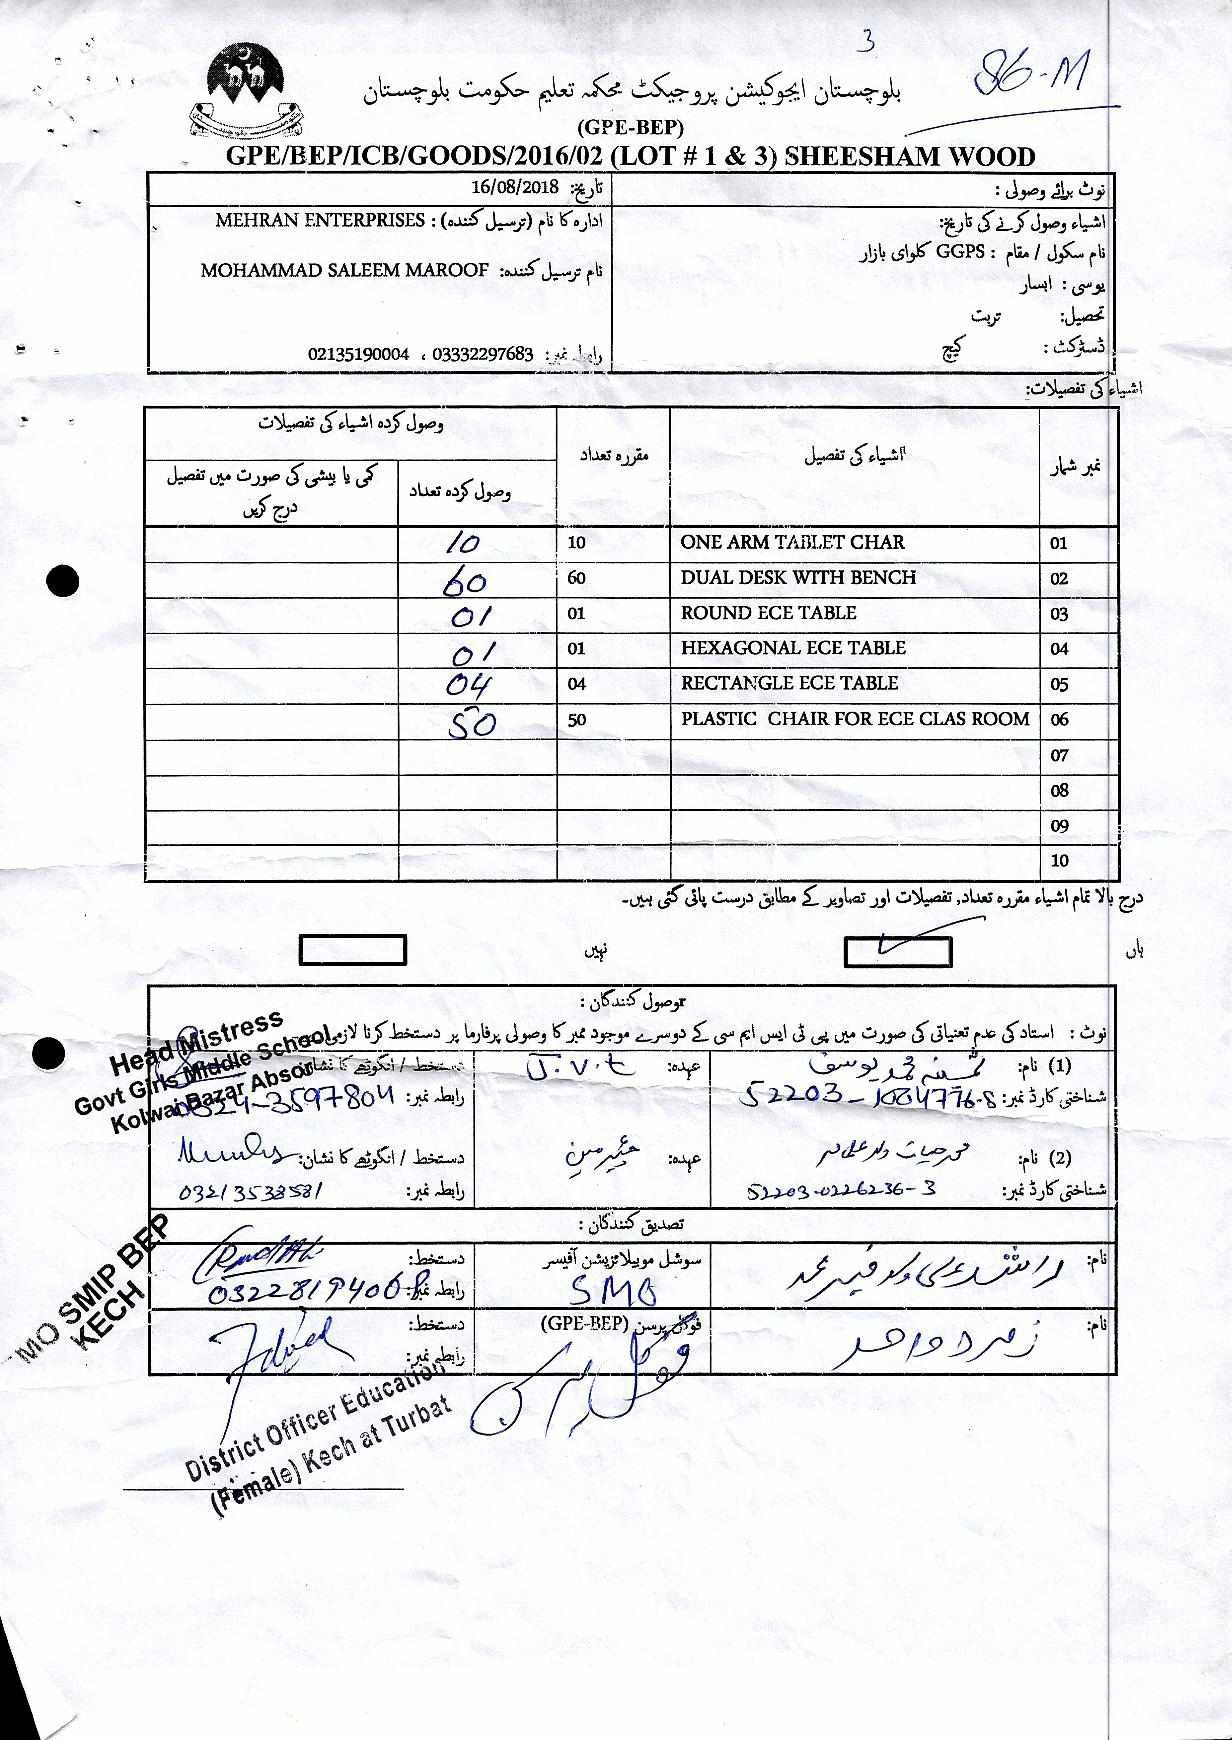 3
86-M
بلوچستان ایجوکیشن پروجیکٹ محکمہ تعلیم حکومت بلوچستان
(GPE-BEP)
GPE/BEP/ICB/GOODS/2016/02 (LOT # 1 & 3) SHEESHAM WOOD
نوٹ برائے وصولی :
تاریخ: 16/08/2018
اشیاء وصول کرنے کی تاریخ:
ادارہ کا نام (ترسیل کنندہ) : MEHRAN ENTERPRISES
نام سکول / مقام : GGPS کلوای بازار
نام ترسیل کنندہ: MOHAMMAD SALEEM MAROOF
یوسی : ابسار
تحصیل: تربت
ڈسٹرکٹ : کیچ
رابطہ نمبر: 03332297683 ، 02135190004
اشیاء کی تفصیلات:
نمبر شمار اشیاء کی تفصیل مقررہ تعداد وصول کردہ اشیاء کی تفصیلات
وصول کردہ تعداد کمی یا بیشی کی صورت میں تفصیل درج کریں
01 ONE ARM TABLET CHAR 10 10
02 DUAL DESK WITH BENCH 60 60
03 ROUND ECE TABLE 01 01
04 HEXAGONAL ECE TABLE 01 01
05 RECTANGLE ECE TABLE 04 04
06 PLASTIC CHAIR FOR ECE CLAS ROOM 50 50
07
08
09
10
درج بالا تمام اشیاء مقررہ تعداد, تفصیلات اور تصاویر کے مطابق درست پائی گئی ہیں۔
ہاں نہیں
وصول کنندگان :
نوٹ : استاد کی عدم تعنیاتی کی صورت میں پی ٹی ایس ایم سی کے دوسرے موجود ممبر کا وصولی پرفارما پر دستخط کرنا لازمی
(1) نام: محمد یوسف عہدہ: J.v.t دستخط / انگوٹھے کا نشان
شناختی کارڈ نمبر: 52203-1004776-8 رابطہ نمبر: 0324-3597804
Head Mistress
Govt Girls Middle School
Kolwai Bazar Absor
(2) نام: محمد حیات ولد علی عہدہ: چیئرمین دستخط / انگوٹھے کا نشان:
شناختی کارڈ نمبر: 52203-0226236-3 رابطہ نمبر: 03213538581
تصدیق کنندگان :
نام: راشد علی ولد فقیر محمد سوشل موبیلائزیشن آفیسر دستخط:
SMO رابطہ نمبر: 03228194068
MO SMIP BEP
KECH
نام: زمرد واحد فوکل پرسن (GPE-BEP) دستخط:
فوکل پرسن رابطہ نمبر:
District Officer Education
(Female) Kech at Turbat